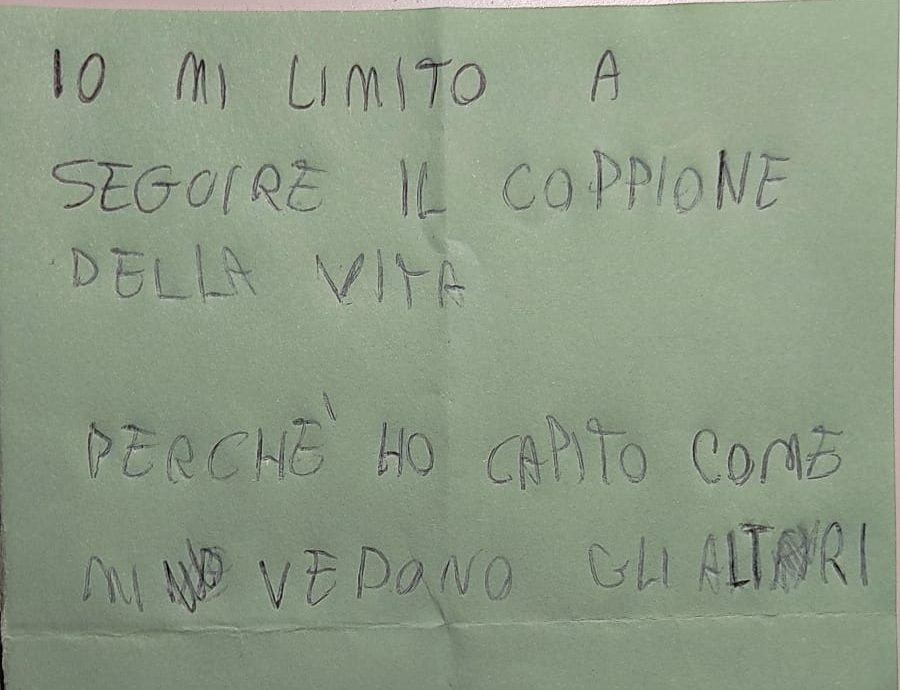 IO MI LIMITO A
SEGUIRE IL COPPIONE
DELLA VITA
PERCHÈ HO CAPITO COME
MI VEDONO GLI ALTRI